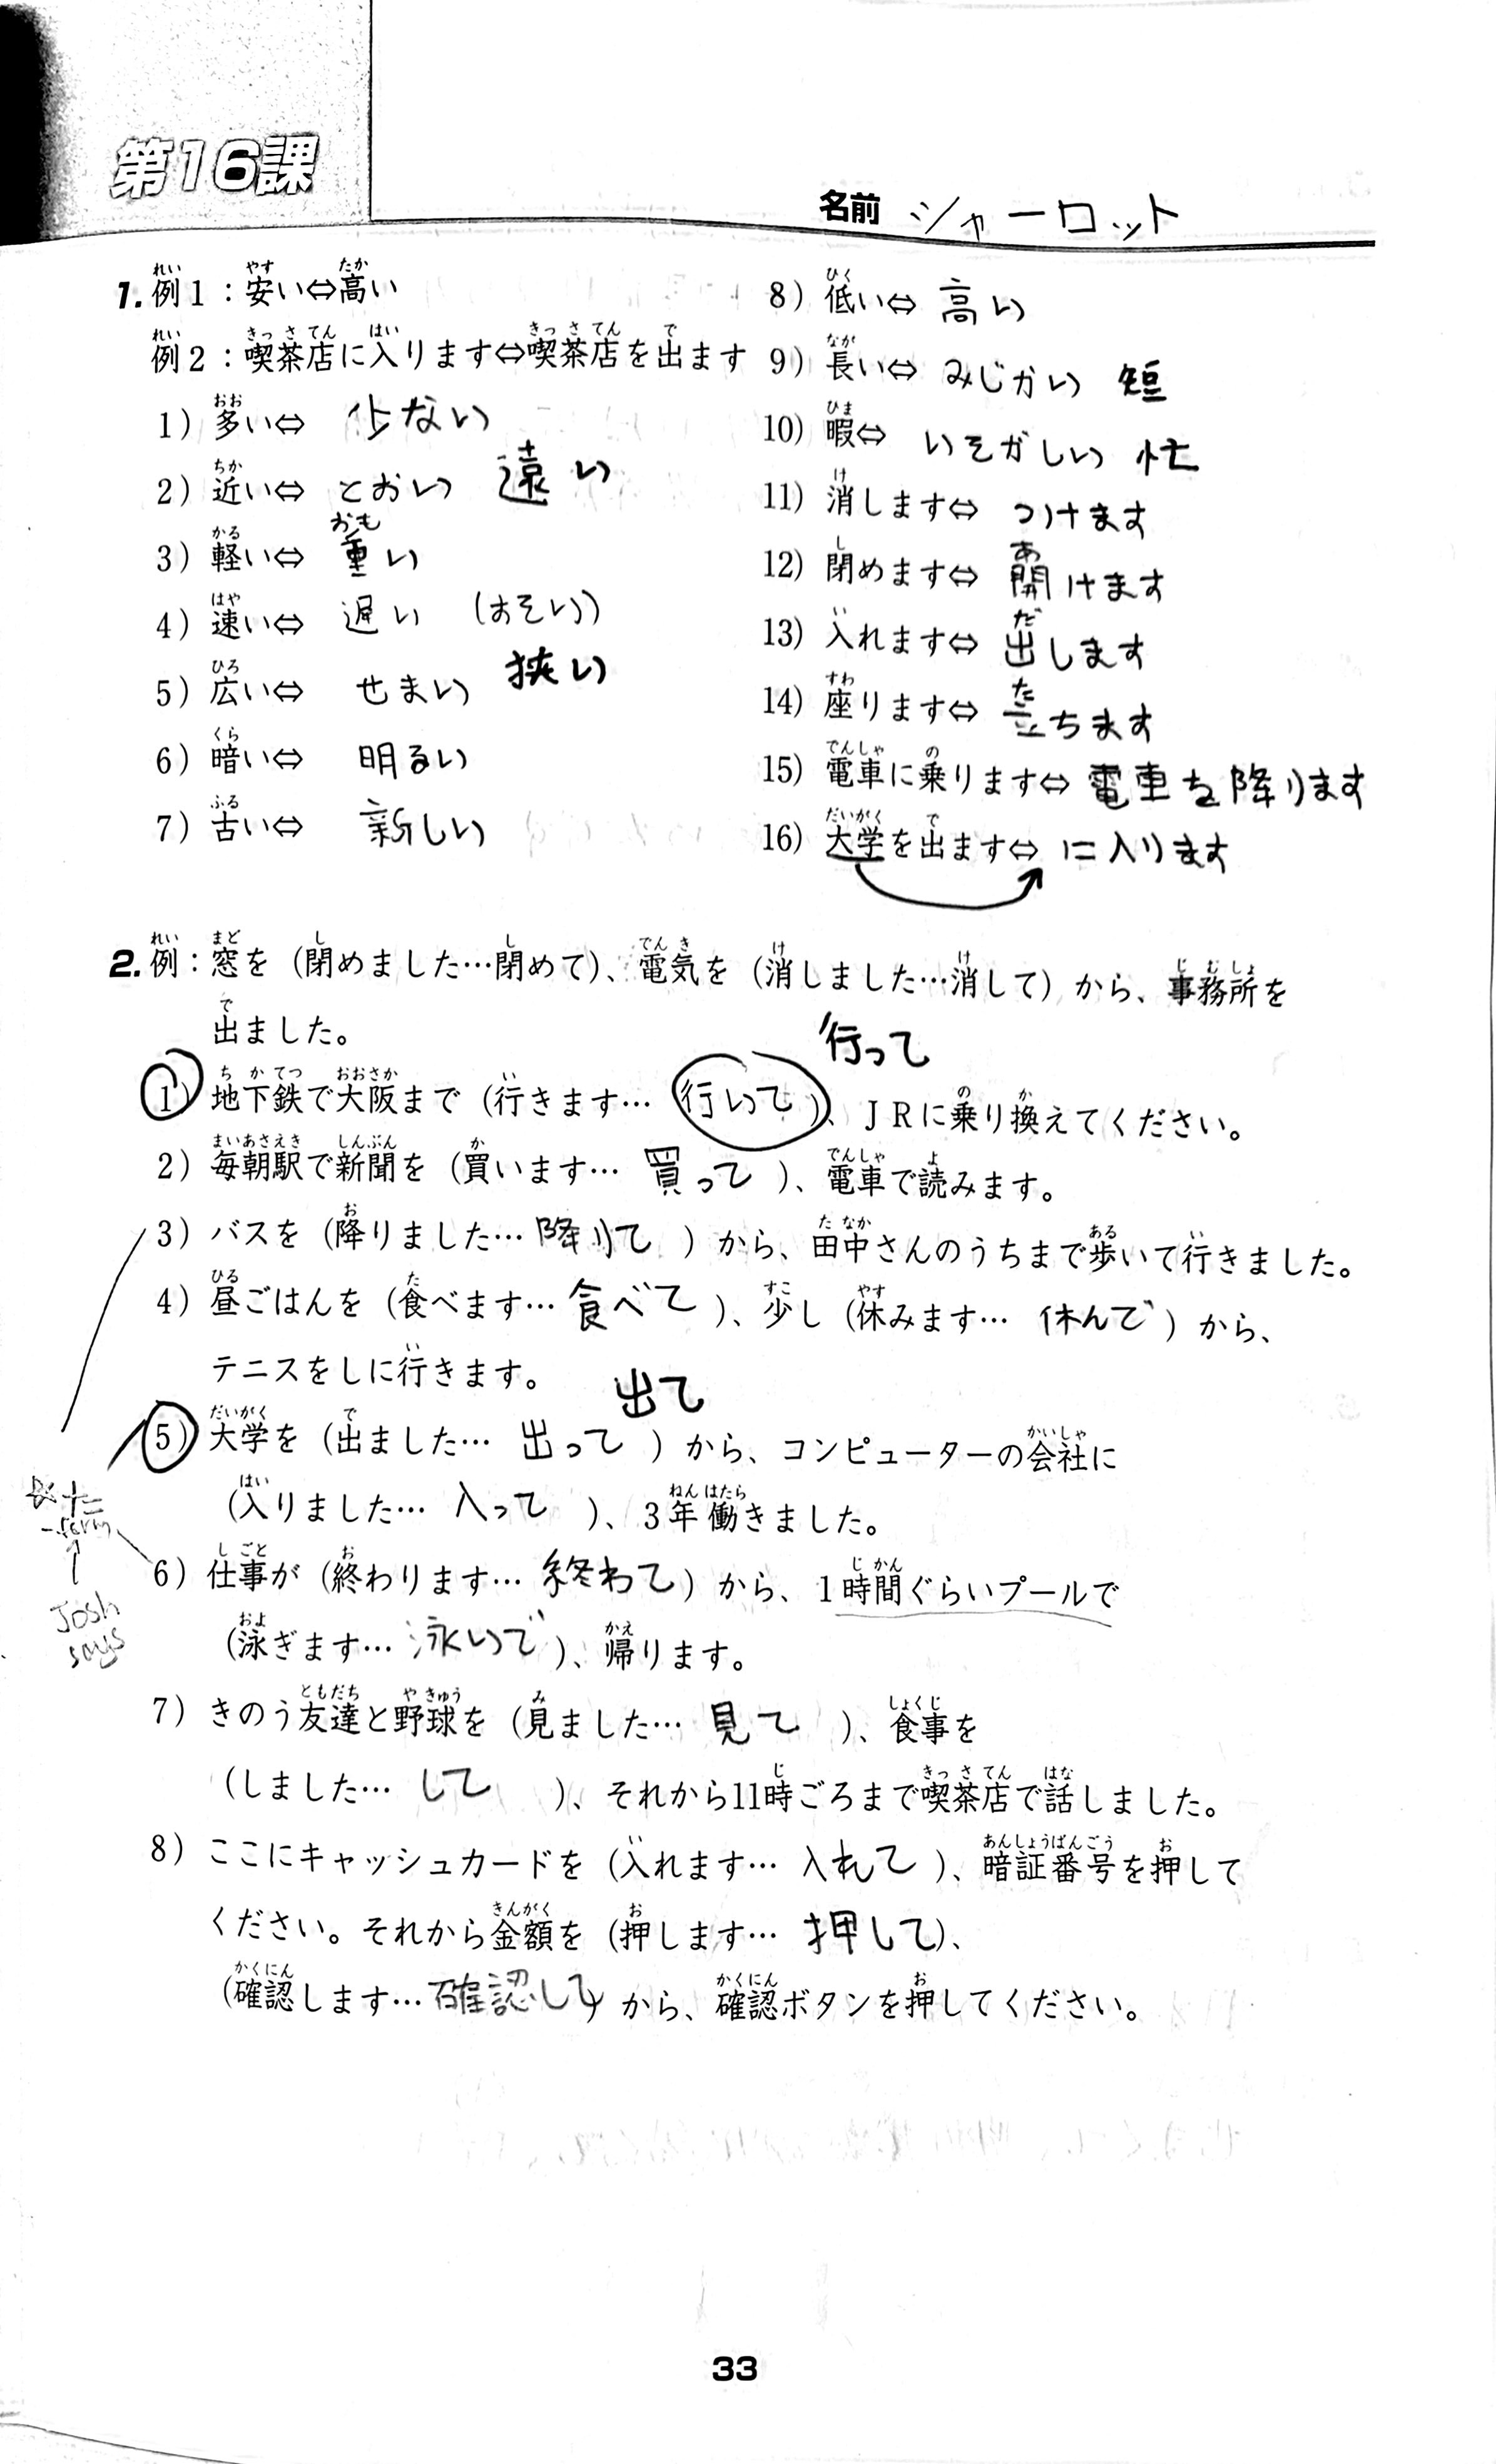 第16課
名前 シャーロット
1. 例1：安い⇔高い
例2：喫茶店に入ります⇔喫茶店を出ます
1) 多い⇔ 少ない
2) 近い⇔ とおい 遠い
3) 軽い⇔ 重い
4) 速い⇔ 遅い (おそい)
5) 広い⇔ せまい 狭い
6) 暗い⇔ 明るい
7) 古い⇔ 新しい
8) 低い⇔ 高い
9) 長い⇔ みじかい 短
10) 暇⇔ いそがしい 忙
11) 消します⇔ つけます
12) 閉めます⇔ 開けます
13) 入れます⇔ 出します
14) 座ります⇔ 立ちます
15) 電車に乗ります⇔ 電車を降ります
16) 大学を出ます⇔ に入ります
2. 例：窓を（閉めました…閉めて）、電気を（消しました…消して）から、事務所を
出ました。
行って
1) 地下鉄で大阪まで（行きます… 行いて ）、ＪＲに乗り換えてください。
2) 毎朝駅で新聞を（買います… 買って ）、電車で読みます。
3) バスを（降りました… 降りて ）から、田中さんのうちまで歩いて行きました。
4) 昼ごはんを（食べます… 食べて ）、少し（休みます… 休んで ）から、
テニスをしに行きます。
出て
5) 大学を（出ました… 出って ）から、コンピューターの会社に
（入りました… 入って ）、3年働きました。
6) 仕事が（終わります… 終わて ）から、1時間ぐらいプールで
（泳ぎます… 泳いで ）、帰ります。
-form
Josh
says
7) きのう友達と野球を（見ました… 見て ）、食事を
（しました… して ）、それから11時ごろまで喫茶店で話しました。
8) ここにキャッシュカードを（入れます… 入れて ）、暗証番号を押して
ください。それから金額を（押します… 押して）、
（確認します… 確認して）から、確認ボタンを押してください。
33